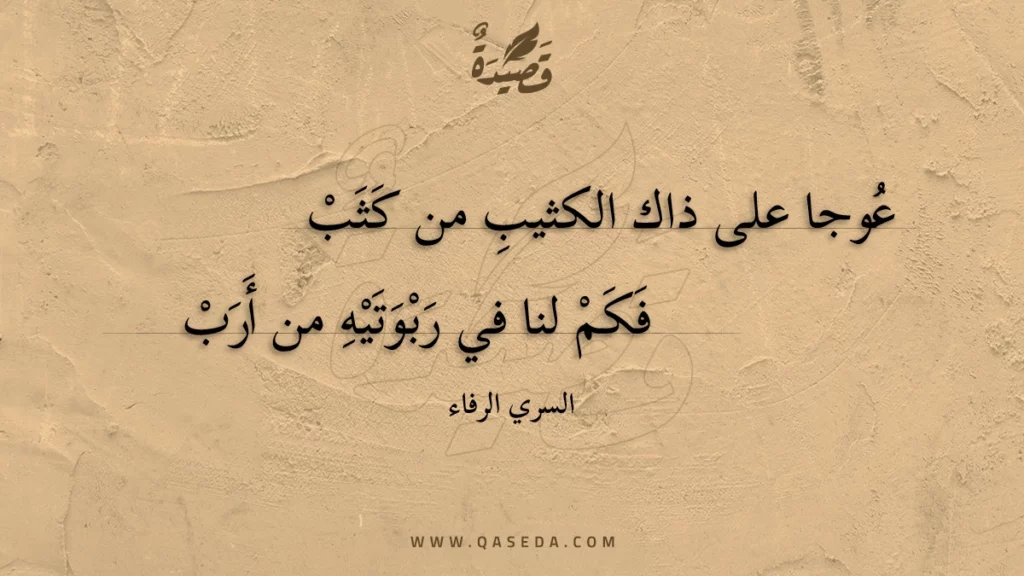 قَصِيدَةٌ
عُوجا على ذاك الكثيبِ من كَثَبْ
فَكَمْ لنا في رَبْوَتَيْهِ من أَرَبْ
السري الرفاء
WWW.QASEDA.COM